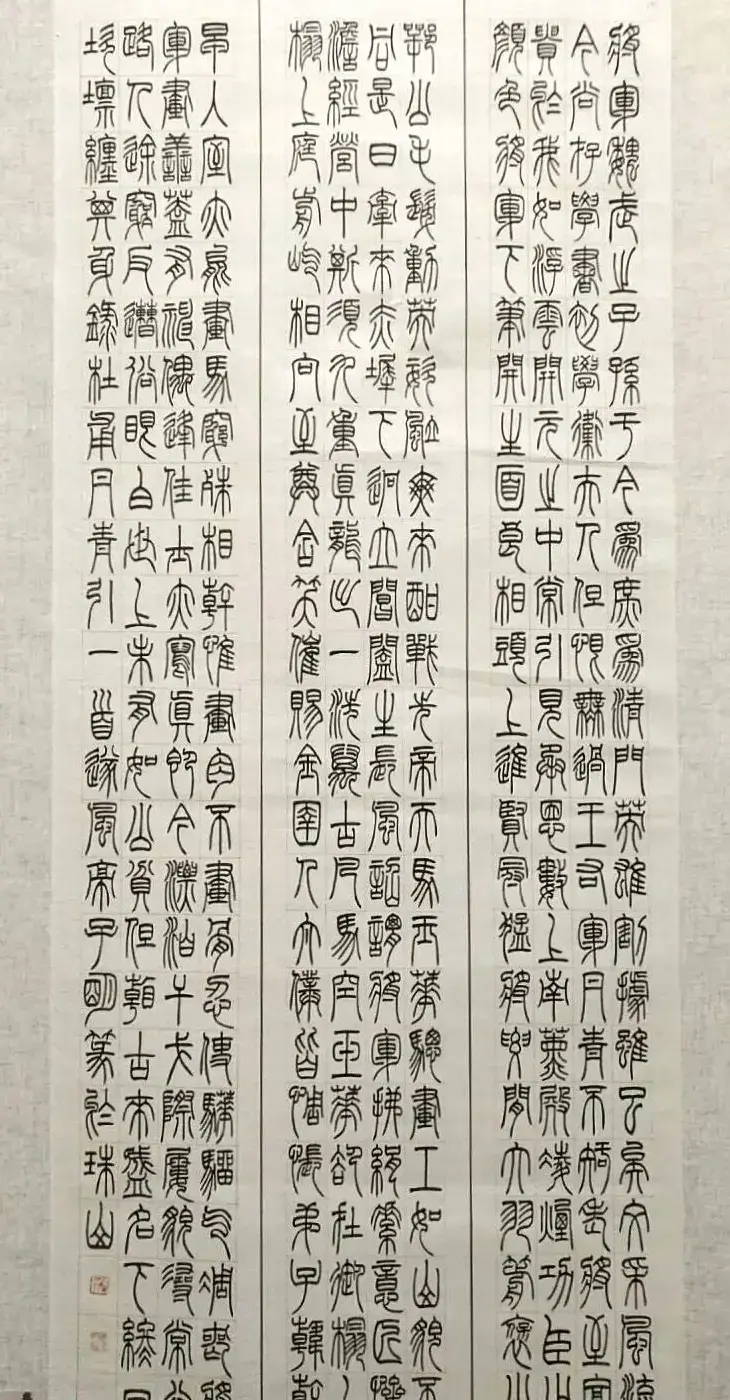 將軍魏武之子孫于今為庶為清門英雄割據雖已矣文采風流
今尚存學書初學衛夫人但恨無過王右軍丹青不知老將至富
貴於我如浮雲開元之中常引見承恩數上南薰殿凌煙功臣少
顏色將軍下筆開生面良相頭上進賢冠猛將腰間大羽箭褒公
鄂公毛髮動英姿颯爽來酣戰先帝天馬玉華驄畫工如山貌不
同是日牽來赤墀下迥立閶闔生長風詔謂將軍拂絹素意匠慘
澹經營中斯須九重真龍出一洗萬古凡馬空玉華卻在御榻上
榻上庭前屹相向至尊含笑催賜金圉人太僕皆惆悵弟子韓幹
早入室亦能畫馬窮殊相幹惟畫肉不畫骨忍使驊騮气凋喪將
軍畫善蓋有神偶逢佳士亦寫真即今漂泊干戈際屢貌尋常行
路人途窮反遭俗眼白世上未有如公貧但看古來盛名下終日
坎壈纏其身錄杜甫丹青引一首遂風子篆於珠山